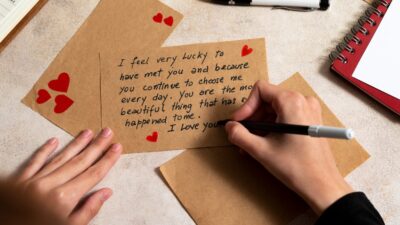 I feel very lucky to
have met you and because
you continue to choose me
every day. You are the mo
beautiful thing that has e
happened to me.
I love you